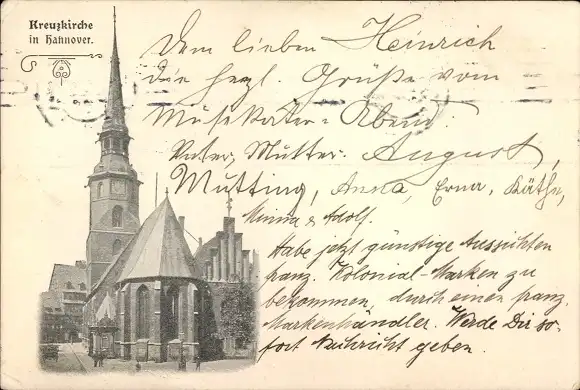 Kreuzkirche
in Hannover.
Dem lieben Heinrich
die herzl. Grüße vom
Abend.
Vater, Mutter. August,
Mutting, Anna, Erna, Käthe,
Minna & Adolf.
Habe jetzt günstige Aussichten
franz. Kolonial-Marken zu
bekommen, durch einen franz.
Markenhändler. Werde Dir so-
fort Nachricht geben.